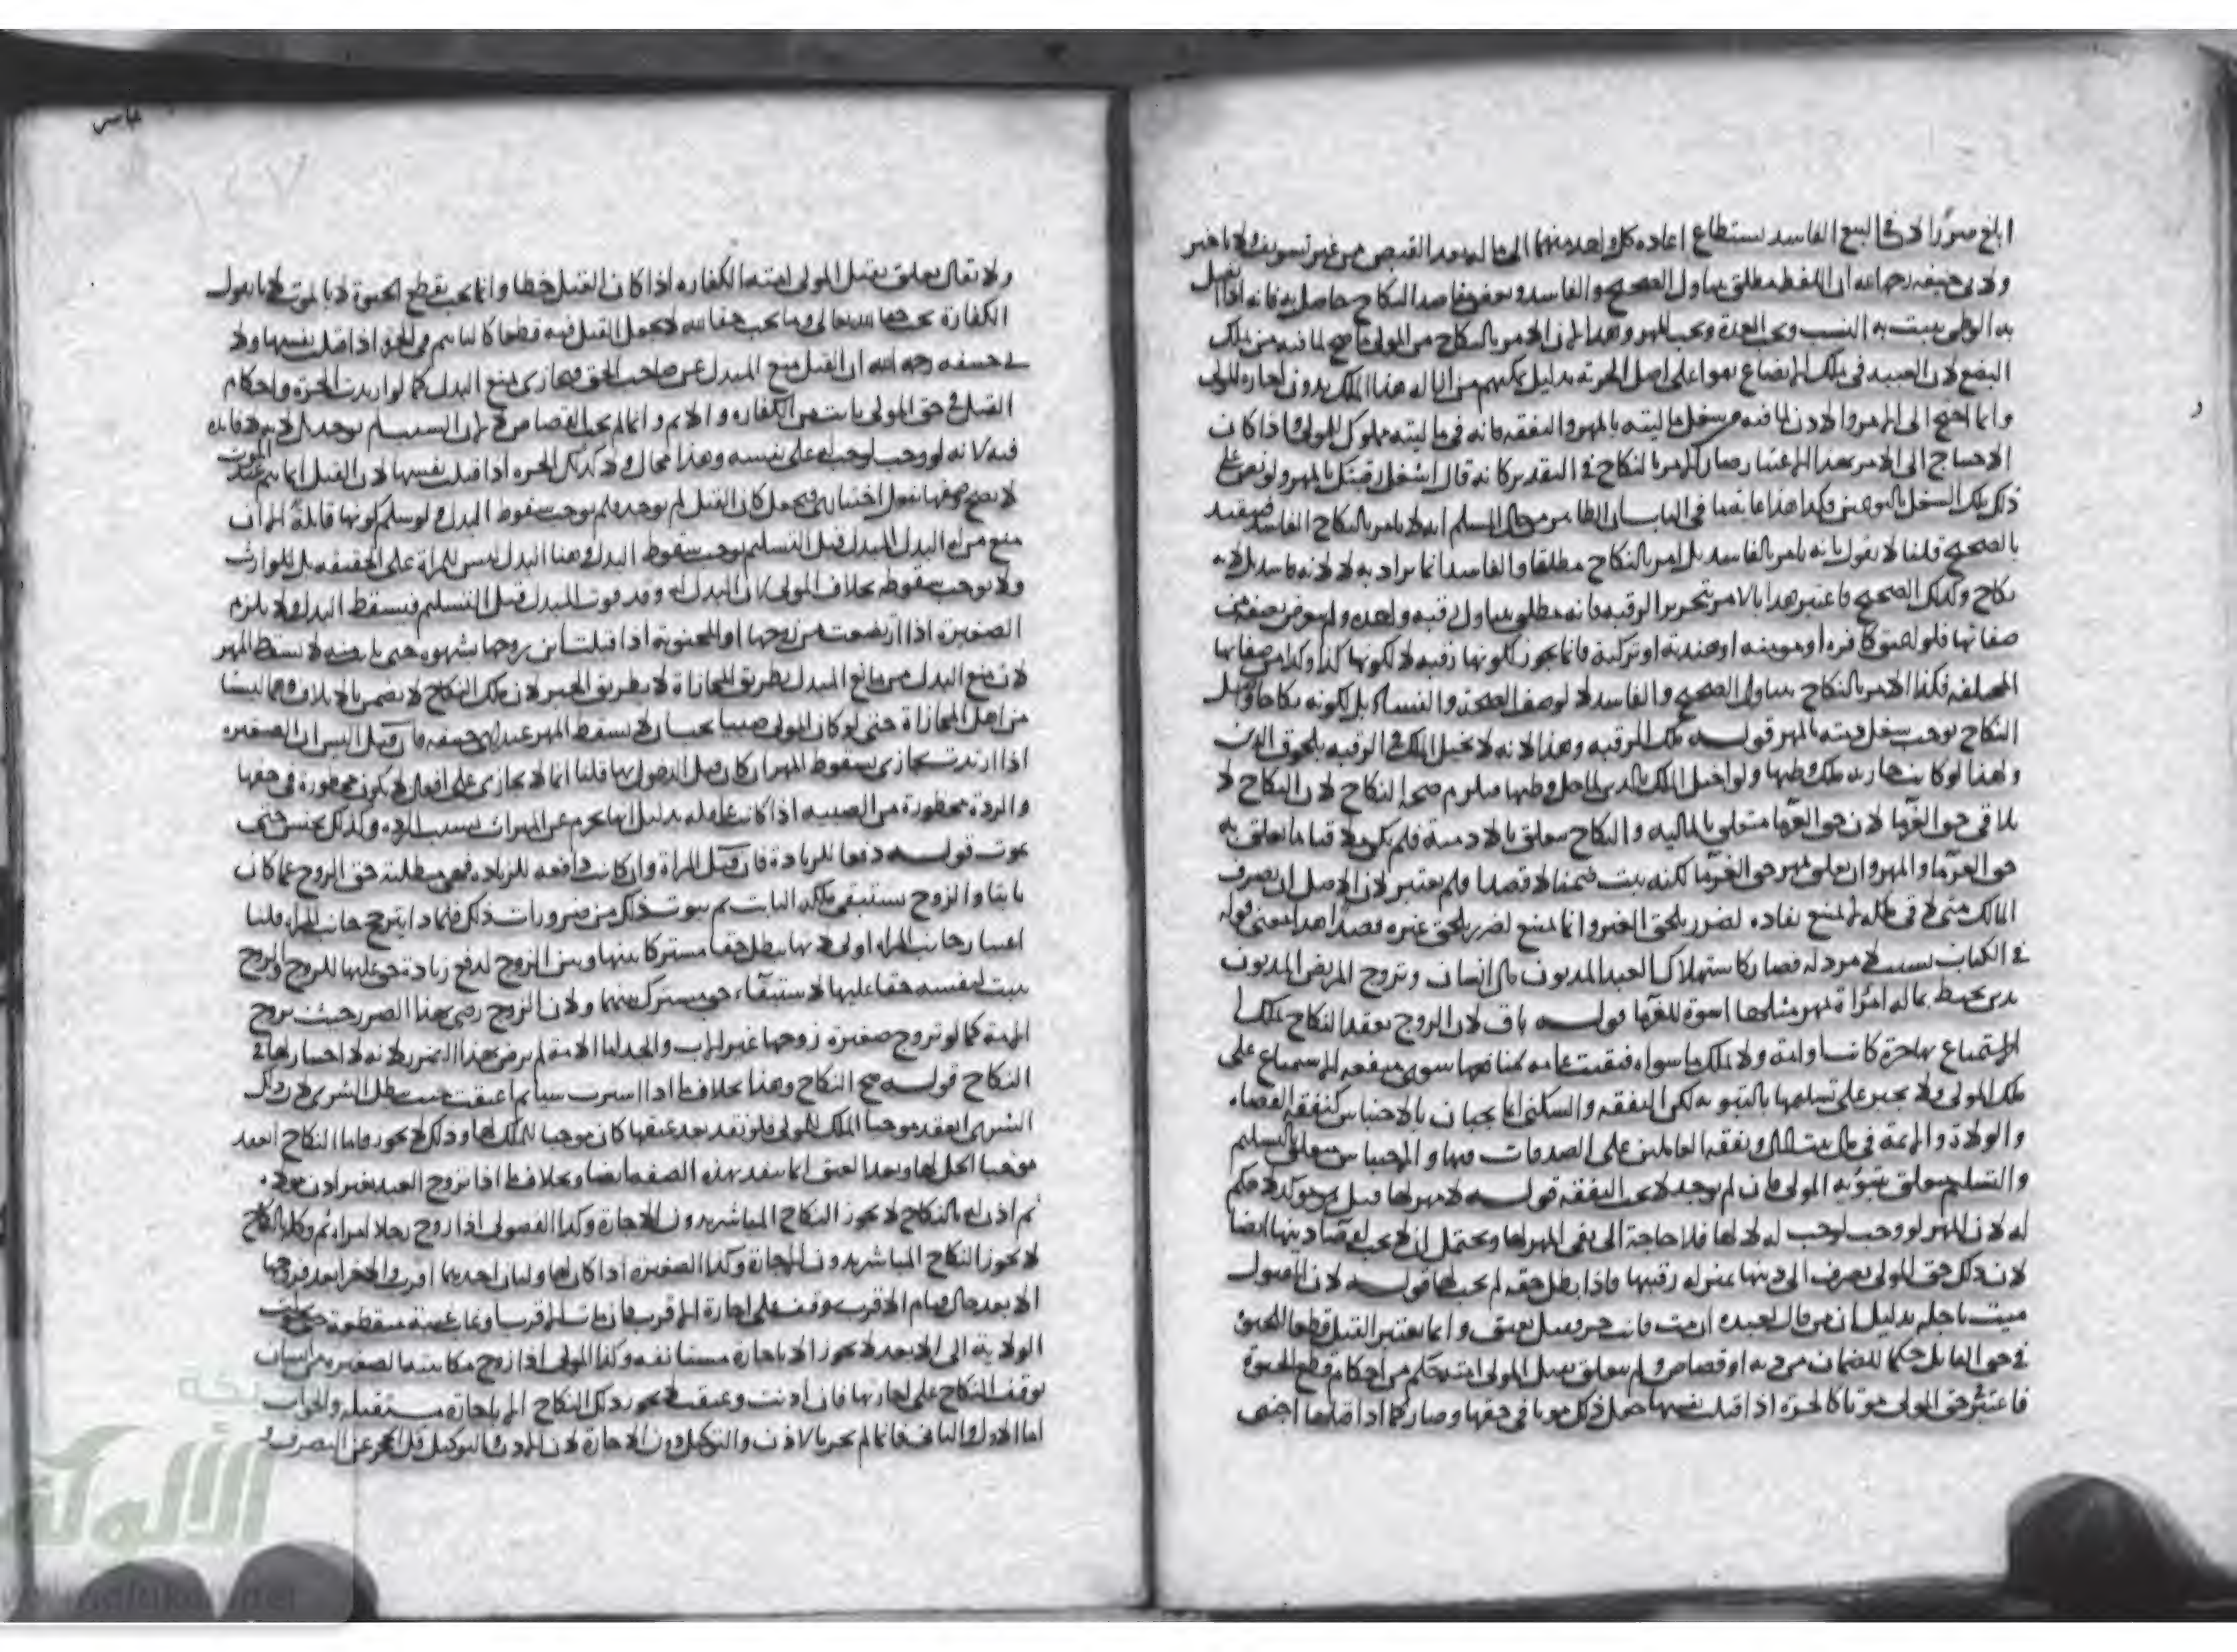 ابلغ ضررا لان في البيع الفاسد يستطاع اعاده كل واحد منهما الى ماله بعد القبض من غير تسويف ولا تاخير
ولابي حنيفه رحمه الله ان اللفظ مطلق يتناول الصحيح والفاسد وبعض مقاصد النكاح حاصل به فانه اذا اتصل
به الوطي يثبت به النسب ويجب العدة ويجب المهر وهذا لان الامر بالنكاح من المولى انما صح لما فيه من ملك
البضع لان العبيد في ملك الابضاع بقوا على اصل الحرية بدليل هذا الملك بدون اجازه المولى
وانما احتيج الى الامر والاذن لما فيه من شغل ماليته بالمهر والنفقه فانه في ماليته مملوك للمولى واذا كان
الاحتياج الى الامر بهذا الاعتبار صار الامر بالنكاح في التقدير كانه قال اشغل رقبتك بالمهر ولو نص على
ذلك يملك الشغل بالنوعين فكذا هذا غايه ما في الباب ان الظاهر من حال المسلم انه لا يامر بالنكاح الفاسد فيتقيد
بالصحيح قلنا لا نقول بانه يامر بالفاسد بل امر بالنكاح مطلقا والفاسد انما يراد به لا لانه فاسد بل لانه
نكاح وكذلك الصحيح فاعتبر هذا بالامر بتحرير الرقبه فانه مطلق يتناول رقبه واحده ولم يتعرض بصفة من
صفاتها فلو اعتق كافره او مومنه او هنديه او تركية فانما يجوز لكونها رقبه لا لكونها كذا وكذا من صفاتها
المختلفه فكذا الامر بالنكاح يتناول الصحيح والفاسد لا لوصف الصحة والفساد بل لكونه نكاحا وقبل
النكاح يوجب شغل ذمته بالمهر قوله ملك الرقبه وهذا لانه لا يختل الملك في الرقبه بلحوق الدين
ولهذا لو كانت جارية ملك وطيها ولو اختل الملك بالدين لما حل وطيها فيلزم صحة النكاح لان النكاح لا
يلاقي حق الغرما لان حق الغرما متعلق بالماليه والنكاح متعلق بالادمية فلم يكن ملاقيا ما تعلق به
حق الغرما والمهر وان تعلق حق الغرما لكنه يثبت ضمنا لا قصدا ولم يعتبر لان الاصل ان تصرف
المالك متى لاقى ملكه لا يمتنع نفاده لضرر يلحق الغير وانما يمتنع لضرر يلحق غيره قصدا هذا معنى قوله
في الكتاب بسبب لا مرد له فصار كاستهلاك العبد المديون مال انسان وتزوج المريض المديون
بدين محيط بماله امراة فمهر مثلها اسوة للغرما قوله باق لان الزوج بعقد النكاح ملك
الاستمتاع بها حرة كانت او امة ولا يملك ما سواه فبقيت عامه منافعها سوى منفعه الاستمتاع على
ملك المولى ولا يجبر على تسليمها بالتبويه لكن النفقه والسكنى انما يجبان بالاحتباس كنفقه القضاه
والولاة والايمة في مال بيت المال ونفقه العاملين على الصدقات فيها والاحتباس متعلق بالتسليم
والتسليم متعلق بتبوئه المولى فان لم يوجد لا يجب النفقه قوله لا مهر لها
له لان المهر لو وجب لوجب له لا لها فلا حاجة الى نفي المهر لها ويحتمل ان لا يجب لقضا دينها ايضا
لان ذلك حق المولى يصرف الى دينها بمنزله رقبتها فاذا بطل حقه لم يجب لها قوله لان المقتول
ميت باجله بدليل ان من قال لعبده ان مت فانت حر وقتل يعتق وانما يعتبر القتل قطعا للحيوة
في حق القاتل حكما للضمان من ديه او قصاص ولم يتعلق بقتل المولى امته حكم من احكام قطع الحيوة
فاعتبر حق المولى موتا كالحرة اذا قتلت نفسها جعل ذلك موتا في حقها وصار كما اذا قتلها اجنبي
ولا يقال يتعلق بقتل المولى امته الكفاره اذا كان القتل خطا وانما يجب بقطع الحيوة لا بالموت لانا نقول
الكفارة تجب حقا لله تعالى وما يجب حقا لله لا يجعل القتل فيه قطعا
حنيفه رحمه الله ان القتل منع المبدل عن صاحب الحق فيجازى بمنع البدل كما لو ارتدت الحرة واحكام
القتل في حق المولى ثابت من الكفاره والاثم وانما لم يجب القصاص
فيه لانه لو وجب لوجب له على نفسه وهذا محال ولا كذلك الحره اذا قتلت نفسها لان القتل انما يتم عند الموت
كان القتل لم يوجد فلم يوجب سقوط البدل ولو سلم كونها قاتلة
منع من له البدل المبدل قبل التسليم يوجب سقوط البدل وهنا البدل ليس للمراة على الحقيقه بل للوارث
ولا يوجب سقوطه بخلاف المولى لان البدل له وقد فوت المبدل قبل التسليم فيسقط البدل ولا يلزم
الصغيرة اذا ارتضعت من زوجها او المجنونة اذا قبلت ابن زوجها بشهوه حتى بانت منه لا يسقط المهر
لان منع البدل من مانع المبدل بطريق المجازاة لا بطريق الجبر لان ملك النكاح لا يضمن بالاتلاف وهما ليستا
من اهل المجازاة حتى لو كان المولى صبيا يجب ان لا يسقط المهر عند ابي حنيفه فان قيل اليس ان الصغيره
اذا ارتدت تجازى بسقوط المهر ان كان قبل الدخول بها قلنا انما لا يجازى على افعال لا يكون محظورة في حقها
والردة محظورة من الصبيه اذا كانت عاقله بدليل انها تحرم عن الميراث بسبب الرده وكذلك تحبس حتى
تموت قوله دفعا للزيادة فان قيل المراة وان كانت دافعه للزياده فهي مبطلة حق الزوج عما كان
ثابتا والزوج يستبقي ملكه الثابت ثم ثبوت ذلك من ضرورات ذلك فبماذا يترجح جانب المراه قلنا
اعتبار جانب المراه اولى لانها تبطل حقا مشتركا بينها وبين الزوج لدفع زيادة حق عليها للزوج والزوج
يثبت لنفسه حقا عليها لاستبقاء حق مشترك بينهما ولان الزوج رضي بهذا الضرر حيث تزوج
الامة كما لو تزوج صغيرة زوجها غير الاب والجد اما الامة لم ترض بهذا الضرر لانه لا اختيار لها في
النكاح قوله صح النكاح وهذا بخلاف ما اذا اشترت شيا ثم عتقت حيث بطل الشرى لان ذلك
الشرى انعقد موجبا الملك للمولى فلو نفذ بعد عتقها كان موجبا للملك لها وذلك لا يجوز فاما النكاح انعقد
موجبا الحل لها وبعد العتق انما ينفذ بهذه الصفه ايضا وبخلاف ما اذا تزوج العبد بغير اذن مولاه
ثم اذن له بالنكاح لا يجوز النكاح المباشر بدون الاجازة وكذا الفضولى اذا زوج رجلا امراه ثم وكله بالنكاح
لا يجوز النكاح المباشر بدون الاجازة وكذا الصغيره اذا كان لها وليان احديهما اقرب والاخر ابعد فزوجها
الابعد حال قيام الاقرب وقف على اجازة الاقرب فان مات الاقرب او غاب غيبة منقطعة حتى
الولاية الى الابعد لا يجوز الا باجازة مستانفه وكذا المولى اذا زوج مكاتبته الصغيره
توقف النكاح على اجازتها فان ادت وعتقت لا يجوز ذلك النكاح الا باجازة مستقبله والجواب
اما الاول والثاني فانما لم يجز بالاذن والتوكيل بدون الاجازة لان الاذن والتوكيل فك الحجر عن التصرف